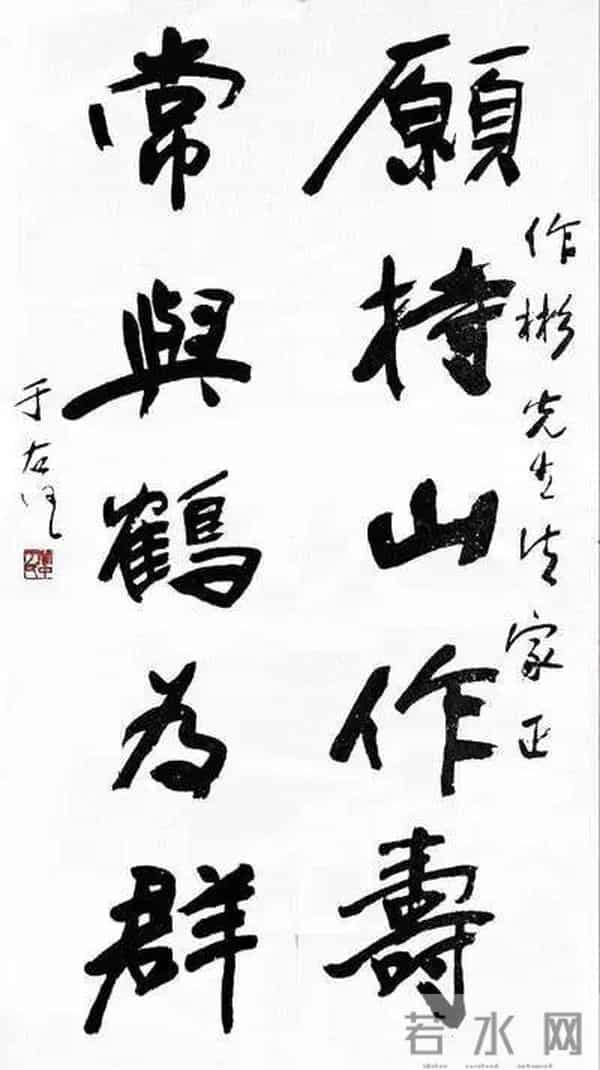 作彬先生法家正
願持山作壽
常與鶴為群
于右任
若水网